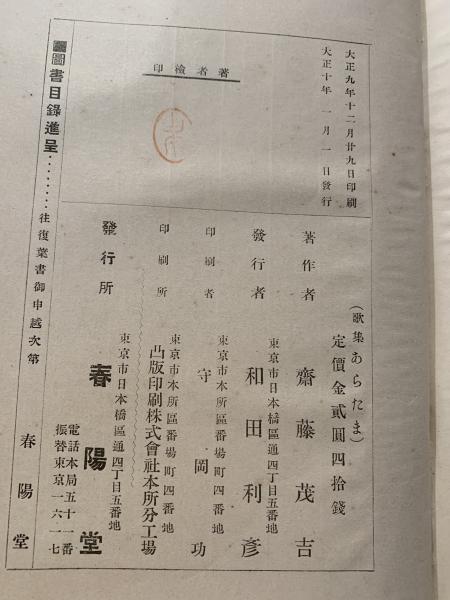 大正九年十二月廿九日印刷
大正十年一月一日發行
著者檢印
(歌集あらたま)
定價金貳圓四拾錢
著作者 齋藤茂吉
東京市日本橋區通四丁目五番地
發行者 和田利彦
東京市本所區番場町四番地
印刷者 守岡功
東京市本所區番場町四番地
印刷所 凸版印刷株式會社本所分工場
東京市日本橋區通四丁目五番地
發行所 春陽堂
電話本局五十一番
振替東京一六一七
圖書目錄進呈………往復葉書御申越次第 春陽堂